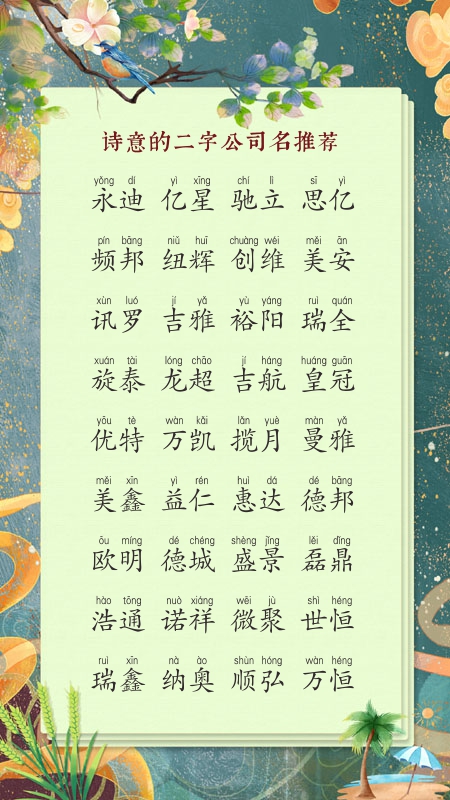 诗意的二字公司名推荐
yǒng dí yì xīng chí lì sī yì
永迪 亿星 驰立 思亿
pín bāng niǔ huī chuàng wéi měi ān
频邦 纽辉 创维 美安
xùn luó jí yǎ yù yáng ruì quán
讯罗 吉雅 裕阳 瑞全
xuán tài lóng chāo jí háng huáng guān
旋泰 龙超 吉航 皇冠
yōu tè wàn kǎi lǎn yuè màn yǎ
优特 万凯 揽月 曼雅
měi xīn yì rén huì dá dé bāng
美鑫 益仁 惠达 德邦
ōu míng dé chéng shèng jǐng lěi dǐng
欧明 德城 盛景 磊鼎
hào tōng nuò xiáng wēi jù shì héng
浩通 诺祥 微聚 世恒
ruì xīn nà ào shùn hóng wàn héng
瑞鑫 纳奥 顺弘 万恒